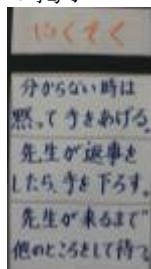 やくそく
分からない時は
黙って手をあげる。
先生が返事を
したら、手を下ろす。
先生が来るまで
他のところをして待つ